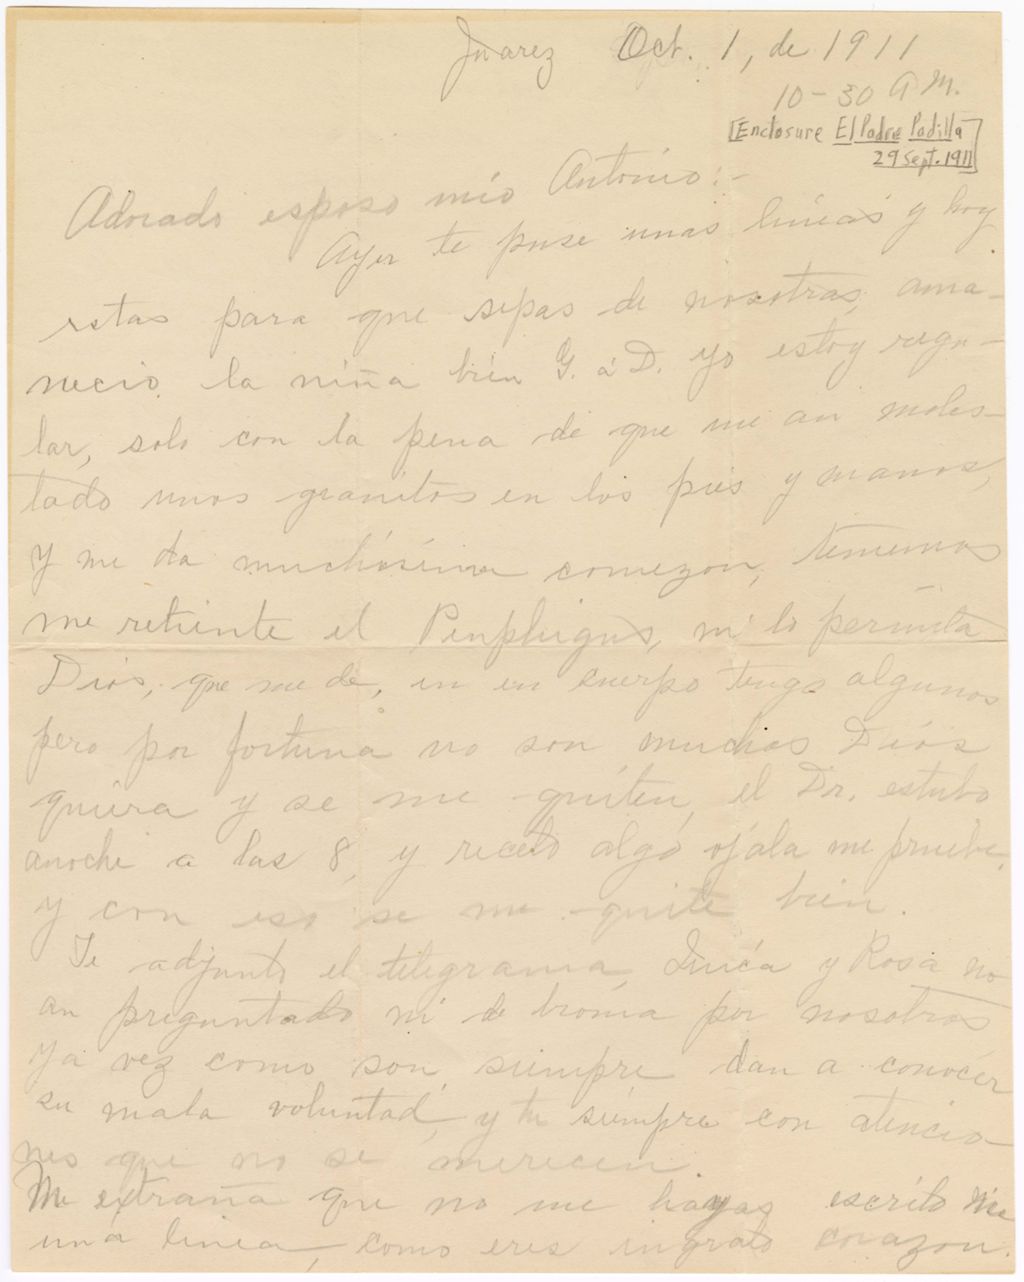 Juarez Oct. 1, de 1911
10-30 A M.
[Enclosure El Padre Padilla
29 Sept. 1911]
Adorado esposo mío Antonio:-
Ayer te puse unas lineas y hoy
estas para que sepas de nosotras, ama-
necio la niña bien G. á D. yo estoy regu-
lar, solo con la pena de que me an moles-
tado unos granitos en los pies y manos,
y me da muchísima comezon, tememos
me retiente el Penphigus, ni lo permita
Dios, que me dé, en en cuerpo tengo algunos
pero por fortuna no son muchos Dios
quiera y se me quiten, el Dr. estubo
anoche a las 8, y recetó algo ojala me pruebe,
y con eso se me quite bien.
Te adjunto el telegrama, y Rosa no
an preguntado ni de broma por nosotros
ya vez como son, siempre dan a conocer
su mala voluntad, y tu siempre con atencio-
nes que no se merecen.
Me extraña que no me hayas escrito nie
una linea, como eres ingrato corazon.